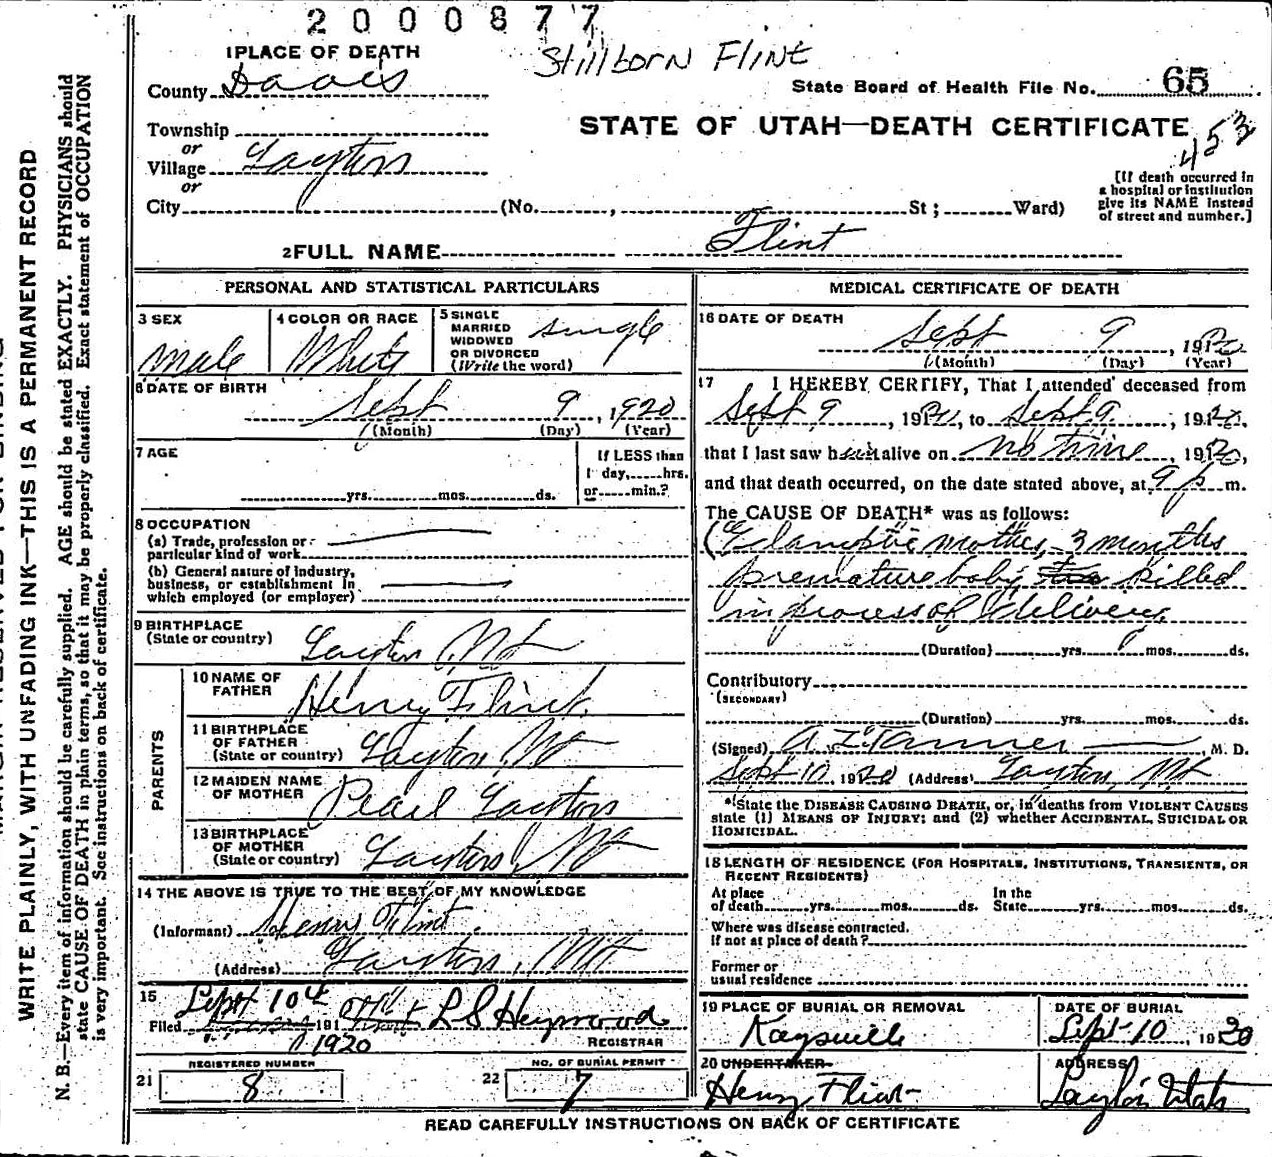 2000877
Stillborn Flint
1 PLACE OF DEATH
County Davis
State Board of Health File No. 65
Township
or
STATE OF UTAH—DEATH CERTIFICATE
453
Village Layton
or
City (No. , St ; Ward)
[If death occurred in
a hospital or institution
give its NAME instead
of street and number.]
2 FULL NAME Flint
PERSONAL AND STATISTICAL PARTICULARS
3 SEX
Male
4 COLOR OR RACE
White
5 SINGLE
MARRIED
WIDOWED
OR DIVORCED
(Write the word)
single
6 DATE OF BIRTH
Sept 9, 1920
(Month) (Day) (Year)
7 AGE
yrs. mos. ds.
If LESS than
1 day, hrs.
or min.?
8 OCCUPATION
(a) Trade, profession or
particular kind of work
(b) General nature of industry,
business, or establishment in
which employed (or employer)
9 BIRTHPLACE
(State or country) Layton, Ut
PARENTS
10 NAME OF
FATHER Henry Flint
11 BIRTHPLACE
OF FATHER
(State or country) Layton, Ut
12 MAIDEN NAME
OF MOTHER Pearl Layton
13 BIRTHPLACE
OF MOTHER
(State or country) Layton, Ut
14 THE ABOVE IS TRUE TO THE BEST OF MY KNOWLEDGE
(Informant) Henry Flint
(Address) Layton, Ut
15
Filed Sept 10 191 L S Heywood
1920 REGISTRAR
REGISTERED NUMBER
21 8
NO. OF BURIAL PERMIT
22 7
MEDICAL CERTIFICATE OF DEATH
16 DATE OF DEATH
Sept 9, 1920
(Month) (Day) (Year)
17 I HEREBY CERTIFY, That I attended deceased from
Sept 9, 1920, to Sept 9, 1920,
that I last saw him alive on no time, 1920,
and that death occurred, on the date stated above, at 9 p m.
The CAUSE OF DEATH* was as follows:
Eclamptic mother, 3 months
premature baby killed
in process of delivery.
(Duration) yrs. mos. ds.
Contributory
(SECONDARY)
(Duration) yrs. mos. ds.
(Signed) A Z Tanner, M. D.
Sept 10, 1920 (Address) Layton, Ut
*State the DISEASE CAUSING DEATH, or, in deaths from VIOLENT CAUSES
state (1) MEANS OF INJURY; and (2) whether ACCIDENTAL, SUICIDAL OR
HOMICIDAL.
18 LENGTH OF RESIDENCE (FOR HOSPITALS, INSTITUTIONS, TRANSIENTS, OR
RECENT RESIDENTS)
At place
of death yrs. mos. ds.
In the
State yrs. mos. ds.
Where was disease contracted.
If not at place of death?
Former or
usual residence
19 PLACE OF BURIAL OR REMOVAL
Kaysville
DATE OF BURIAL
Sept 10, 1920
20 UNDERTAKER
Henry Flint
ADDRESS
Layton Utah
READ CAREFULLY INSTRUCTIONS ON BACK OF CERTIFICATE
WRITE PLAINLY, WITH UNFADING INK—THIS IS A PERMANENT RECORD
N. B.—Every item of information should be carefully supplied. AGE should be stated EXACTLY. PHYSICIANS should
state CAUSE OF DEATH in plain terms, so that it may be properly classified. Exact statement of OCCUPATION
is very important. See instructions on back of certificate.